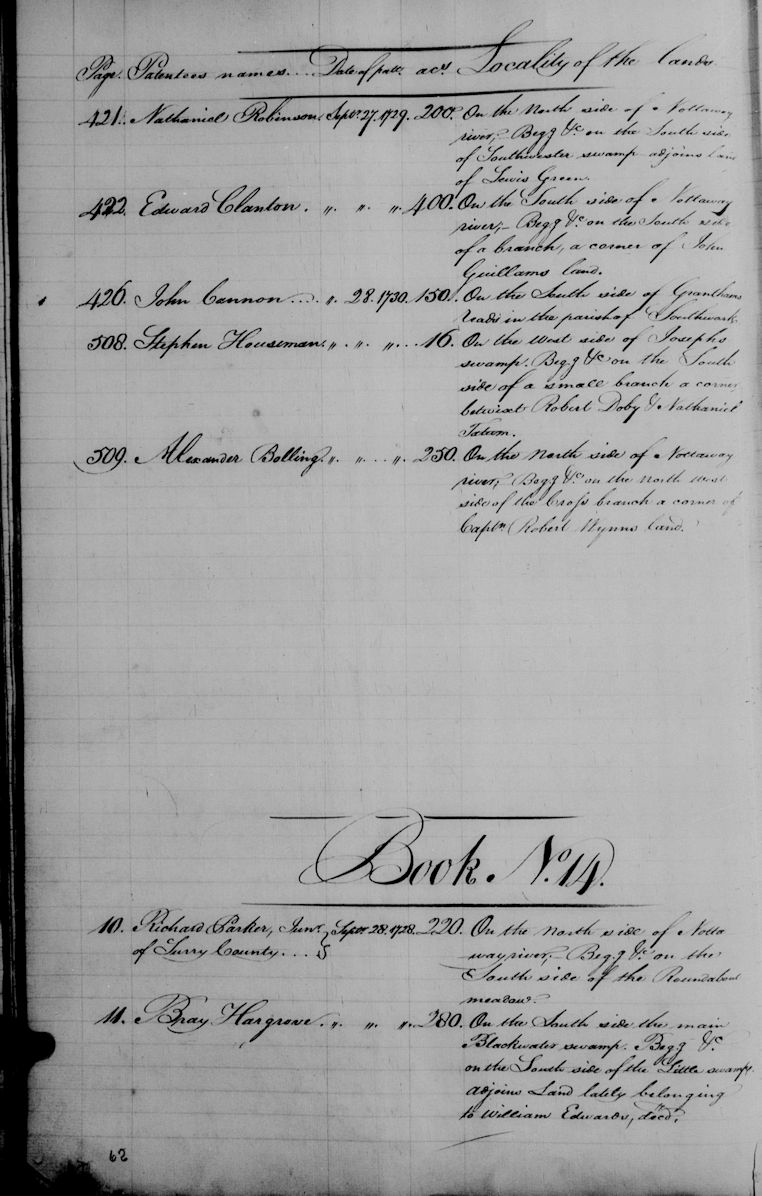 Page. Patentees names.... Date of patt. acs. Locality of the lands
421. Nathaniel Robinson. Septr. 27. 1729. 200. On the North side of Nottaway
river,- Begg &c on the South side
of Southwester swamp adjoins land
of Lewis Green.
422. Edward Clanton. " " " 400. On the South side of Nottaway
river,- Begg &c on the South side
of a branch, a corner of John
Guillams land.
426. John Cannon.... " 28. 1730. 150. On the South side of Granthams
reads in the parish of Southwark.
508. Stephen Houseman. " " "... 16. On the West side of Josephs
swamp. Begg &c on the South
side of a small branch a corner
betwixt Robert Doby & Nathaniel
Tatum.
509. Alexander Bolling. " "... " 250. On the North side of Nottaway
river,- Begg &c on the North West
side of the Cross branch a corner of
Captn Robert Wynns land.
Book. No. 14.
10. Richard Parker, Junr. } Septr. 28. 1728. 220. On the North side of Notta
of Surry County....
way river,- Begg &c on the
South side of the Roundabout
meadow.
11. Bray Hargrove. " " " 280. On the South side the main
Blackwater swamp. Begg &c.
on the South side of the Little swamp.
adjoins Land lately belonging
to William Edwards, decd.
62